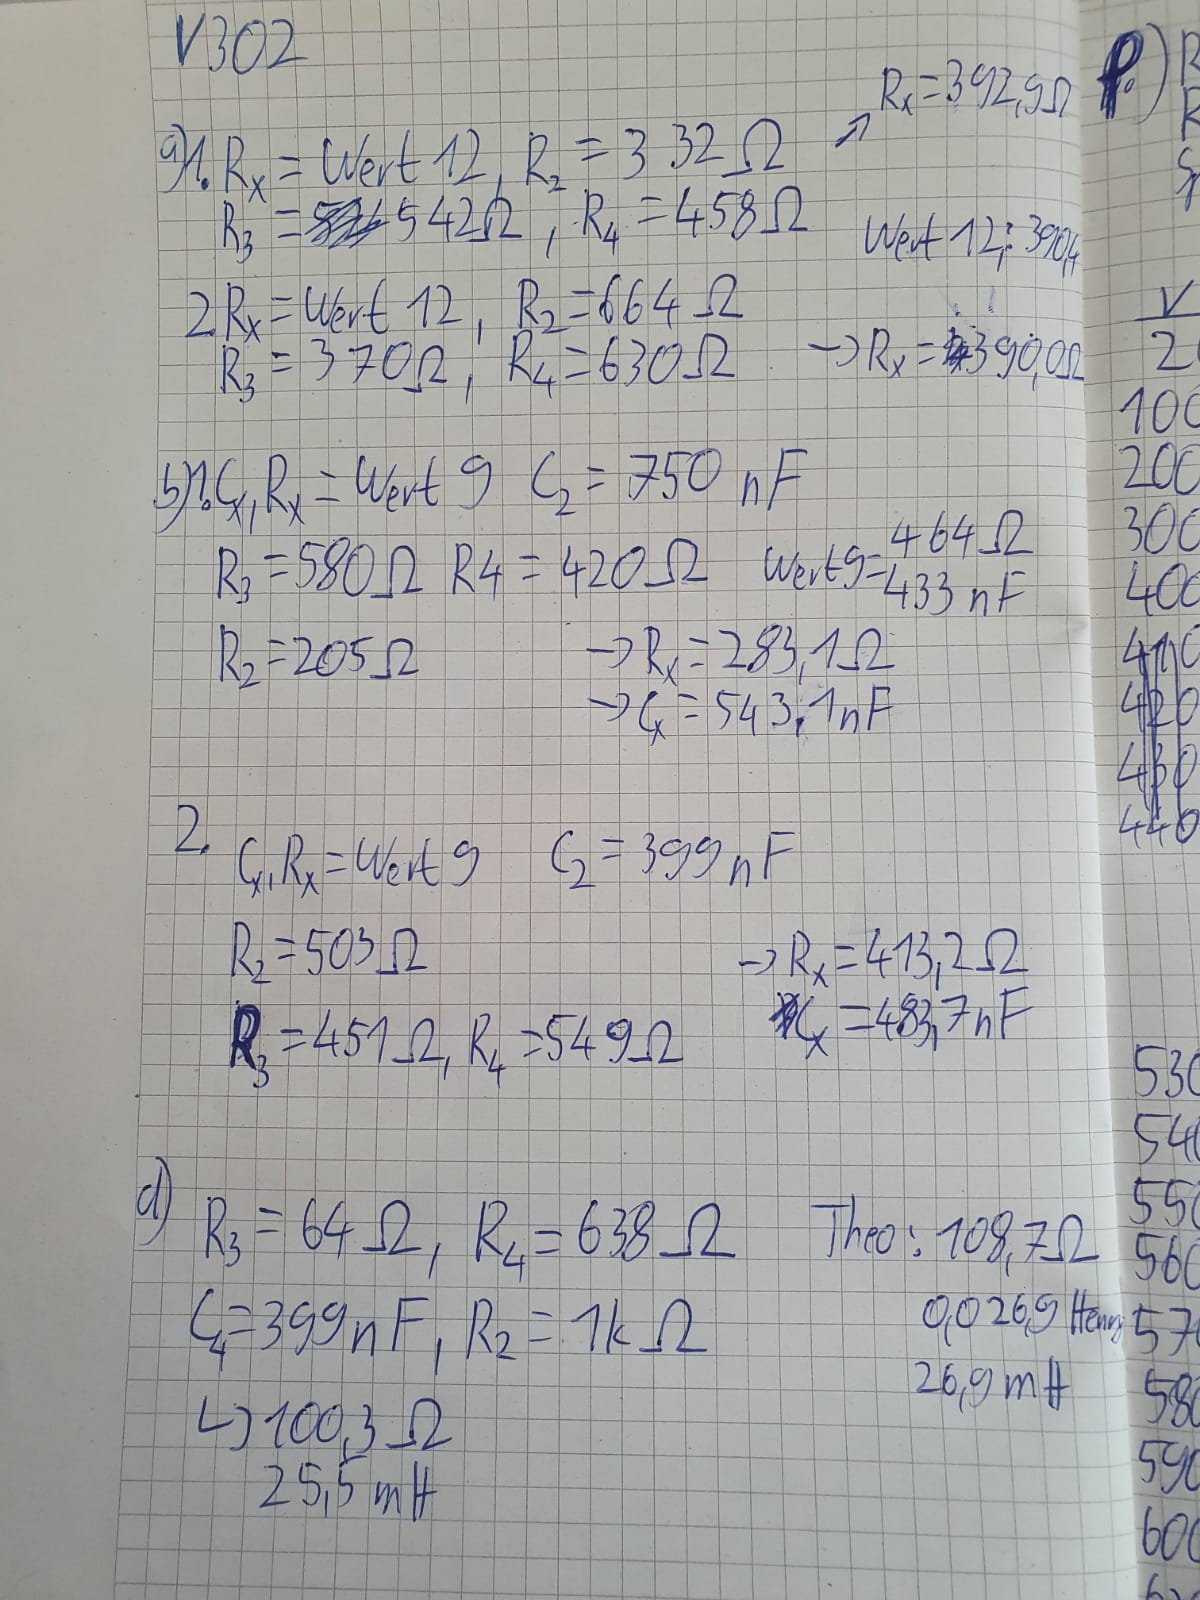 V302
Rx = 392,9Ω
a) 1. Rx = Wert 12, R2 = 332Ω ↗
R3 = 542Ω, R4 = 458Ω
Wert 12: 390,4
2. Rx = Wert 12, R2 = 664Ω
R3 = 370Ω, R4 = 630Ω → Rx = 390,0Ω
b) 1. Cx, Rx = Wert 9 C2 = 750 nF
R3 = 580Ω R4 = 420Ω Wert 9 = 464Ω
433 nF
R2 = 205Ω → Rx = 283,1Ω
→ Cx = 543,1nF
2. Cx, Rx = Wert 9 C2 = 399 nF
R2 = 503Ω → Rx = 413,2Ω
Cx = 483,7nF
R3 = 451Ω, R4 = 549Ω
d) R3 = 64Ω, R4 = 638Ω Theo: 108,7Ω
C4 = 399nF, R2 = 1kΩ 0,0269 Henry
26,9 mH
↳ 100,3Ω
25,5 mH
f.) R
R
Sp
V
100
200
300
400
410
420
430
440
530
540
550
560
570
580
590
600